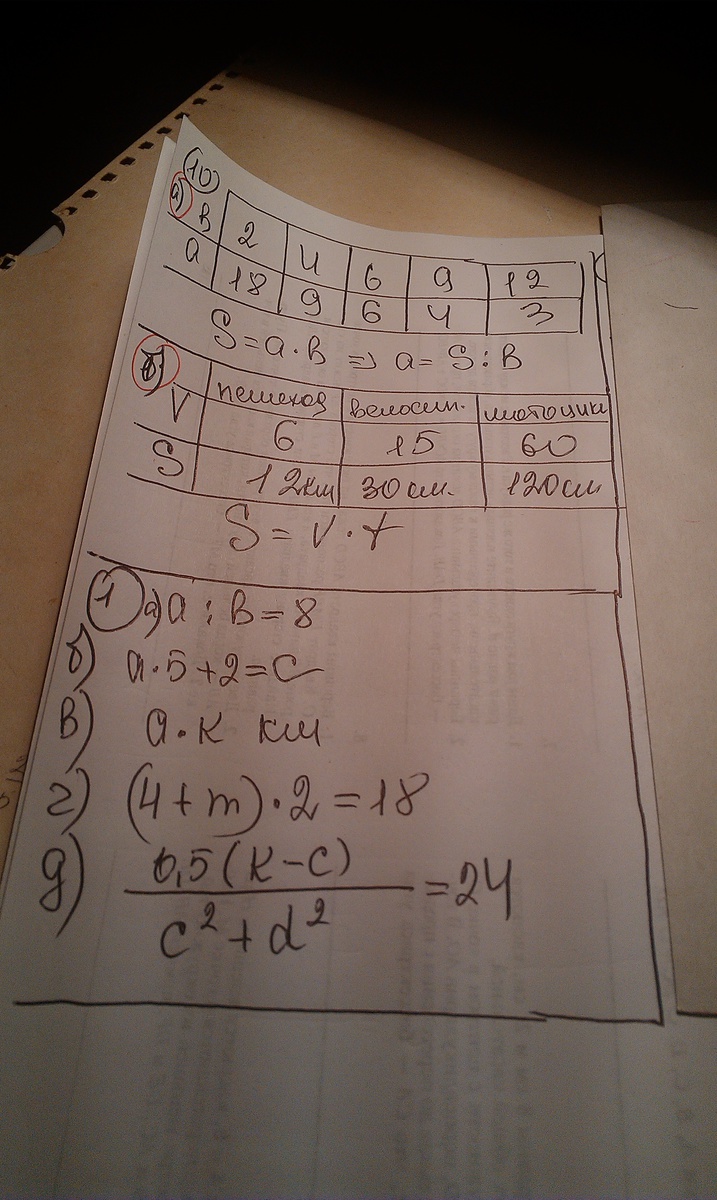 10
а) В 2 4 6 9 12
а 18 9 6 4 3
S = а · В ⇒ а = S : В
б) пешеход велосип. мотоцикл
V 6 15 60
S 12км 30 см. 120 см
S = V · t
1 а) а : В = 8
б) а · 5 + 2 = С
в) а · к км
г) (4 + m) · 2 = 18
д) 0,5 (к – с) / c² + d² = 24